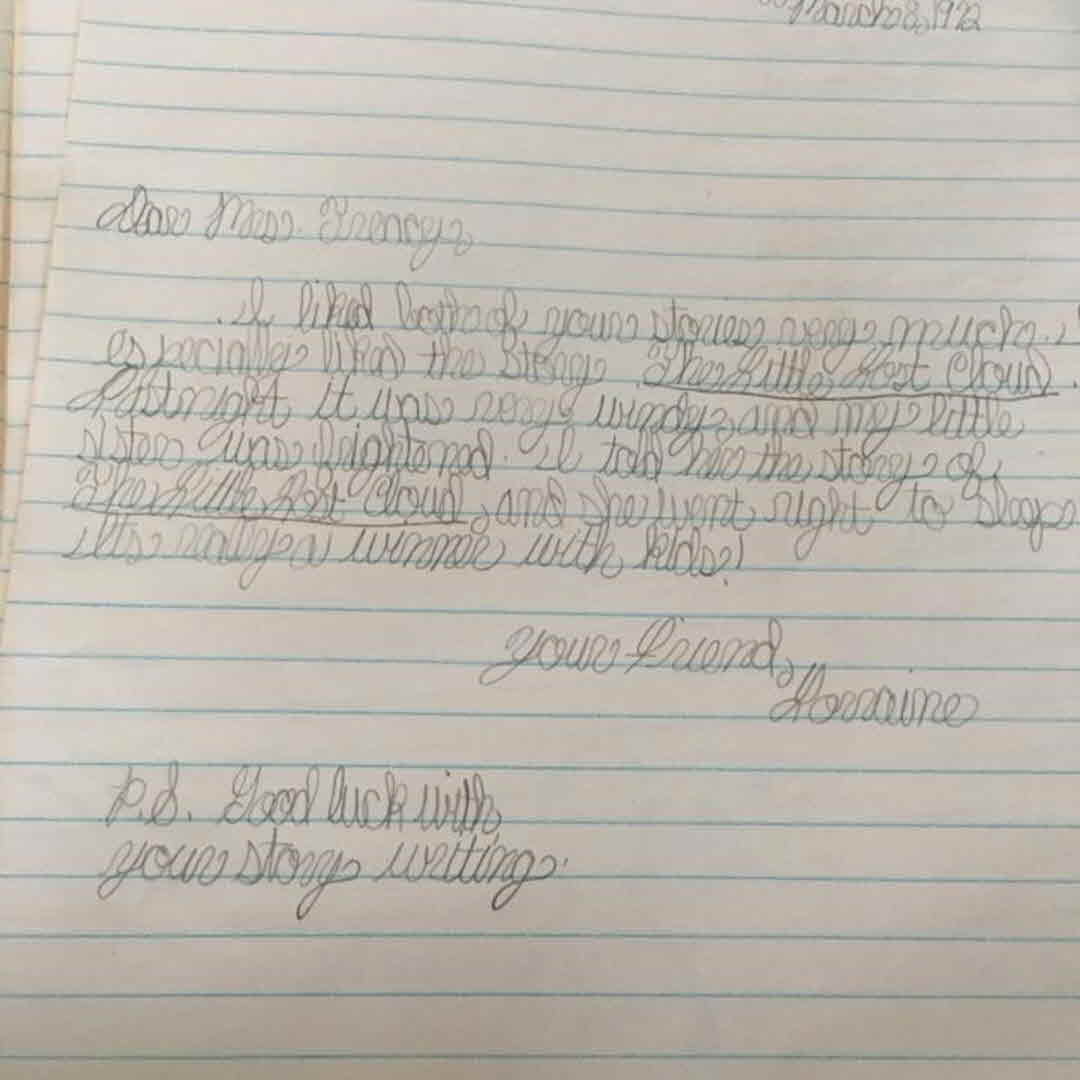 March 8, 1972
Dear Mrs.
I liked both of your stories very much. I
especially liked the story The Little Lost Cloud.
Last night it was very windy, and my little
sister was frightened. I told her the story of
The Little Lost Cloud, and she went right to sleep
It's really a winner with kids!
Your Friend,
Lorraine
P.S. Good luck with
your story writing.